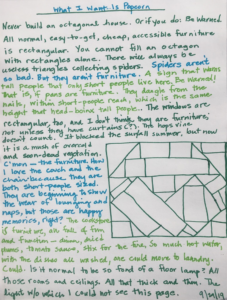 What I Want Is Popcorn
Never build an octagonal house. Or if you do: Be Warned
All normal, easy-to-get, cheap, accessible furniture
is rectangular. You cannot fill an octagon
with rectangles alone. There will always be
useless triangles collecting spiders. Spiders aren't
so bad. But they aren't furniture. A sign that warns
tall people that only short people live here. Be warned!
That is, if pans are furniture. They dangle from the
nails, within short-people reach, which is the same
height that head-bonks tall people. The windows are
rectangular, too, and I don't think they are furniture,
not unless they have curtains (?). The hops vine
doesn't count. It blocked the sunfall summer, but now
it is a mesh of overcast
and soon-dead vegetation.
C'mon — the furniture. How
I love the couch and the
chairs because they are
both short-people sized.
They are beginning to show
the wear of lounging and
naps, but those are happy
memories, right? The
of furniture, all full of fun
and function — dining, dried
plums, tomato sauce, mix for the tea. So much hot water,
with the dishes all washed, one could move to laundry.
Could. Is it normal to be so fond of a floor lamp? All
those rooms and ceilings. All that thick and thin. The
light w/o which I could not see this page.